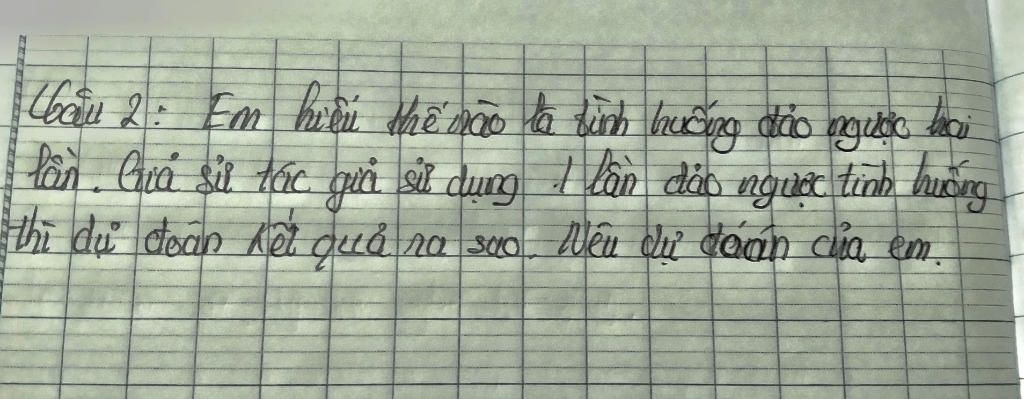 Câu 2: Em hiểu thế nào là tình huống đảo ngược hai
lần. Giả sử tác giả sử dụng 1 lần đảo ngược tình huống
thì dự đoán kết quả ra sao. Nêu dự đoán của em.